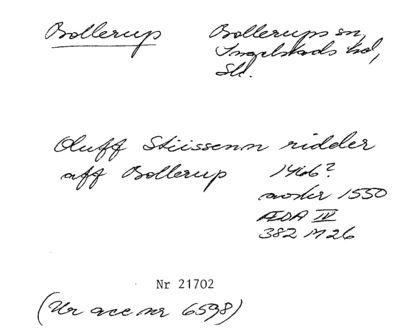 Bollerup Bollerups sn,
Ingelstads hd,
Sk.
Oluff Stiissenn ridder
aff Bollerup 1466?
avskr 1550
ÆDA IV
382 M 26
Nr 21702
(Ur acc nr 6598)